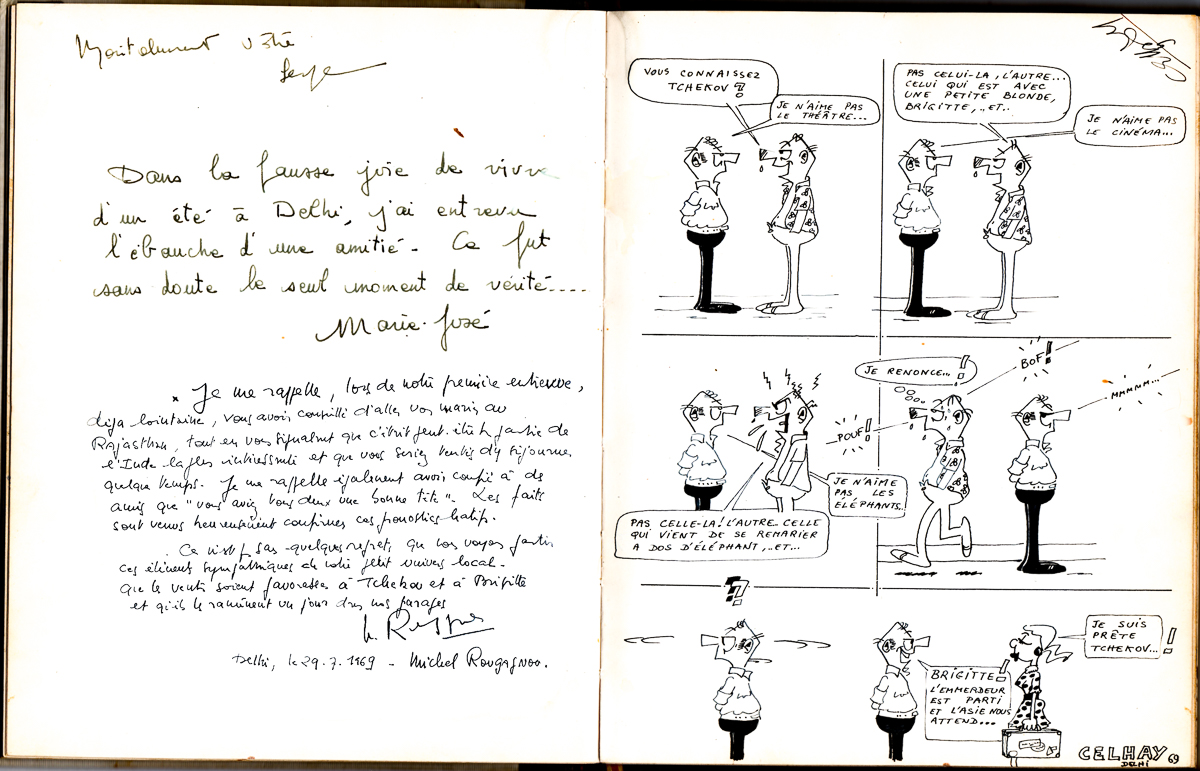 votre
Serge
Dans la fausse joie de vivre
d'un été à Delhi, j'ai entrevu
l'ébauche d'une amitié. Ce fut
sans doute le seul moment de vérité....
Marie-José
Je me rappelle, lors de notre première entrevue,
déjà lointaine, vous avoir conseillé d'aller vos maris au
Rajasthan, tout en vous signalant que c'était peut-être la partie de
l'Inde la plus intéressante et que vous seriez tentés d'y séjourner
quelque temps. Je me rappelle également avoir confié à des
amis que "vous aviez tous deux une bonne tête". Les faits
sont venus heureusement confirmer ces pronostics hatifs.
Ce n'est pas sans quelques regret, que nous voyons partir
ces éléments sympathiques de notre petit univers local.
que les vents soient favorables à Tchekov et à Brigitte
et qu'ils les ramènent un jour dans nos parages
Delhi, le 29.7.1969 - Michel Rougagnou.
VOUS CONNAISSEZ
TCHEKOV ?
JE N'AIME PAS
LE THÉÂTRE...
PAS CELUI-LA, L'AUTRE...
CELUI QUI EST AVEC
UNE PETITE BLONDE,
BRIGITTE,..ET..
JE N'AIME PAS
LE CINÉMA...
PAS CELLE-LA! L'AUTRE.. CELLE
QUI VIENT DE SE REMARIER
A DOS D'ÉLÉPHANT,..ET...
JE N'AIME
PAS LES
ÉLÉPHANTS..
POUF!
JE RENONCE...!
BOF!
MMMMM...
?
BRIGITTE!
L'EMMERDEUR
EST PARTI
ET L'ASIE NOUS
ATTEND...
JE SUIS
PRÊTE
TCHEKOV...!
CELHAY 69
DELHI